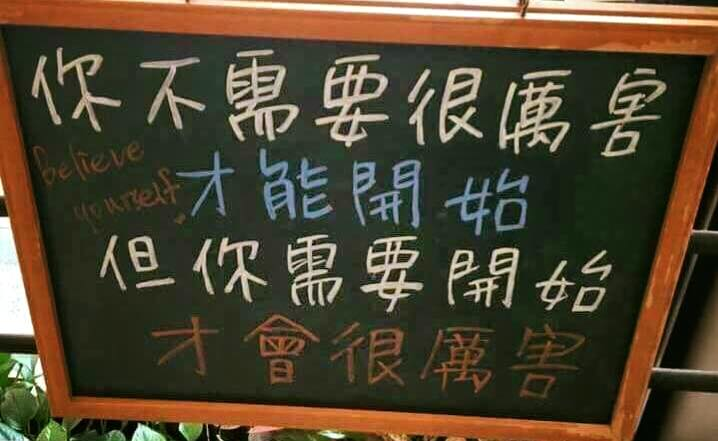 你不需要很厲害
Believe
yourself
才能開始
但你需要開始
才會很厲害